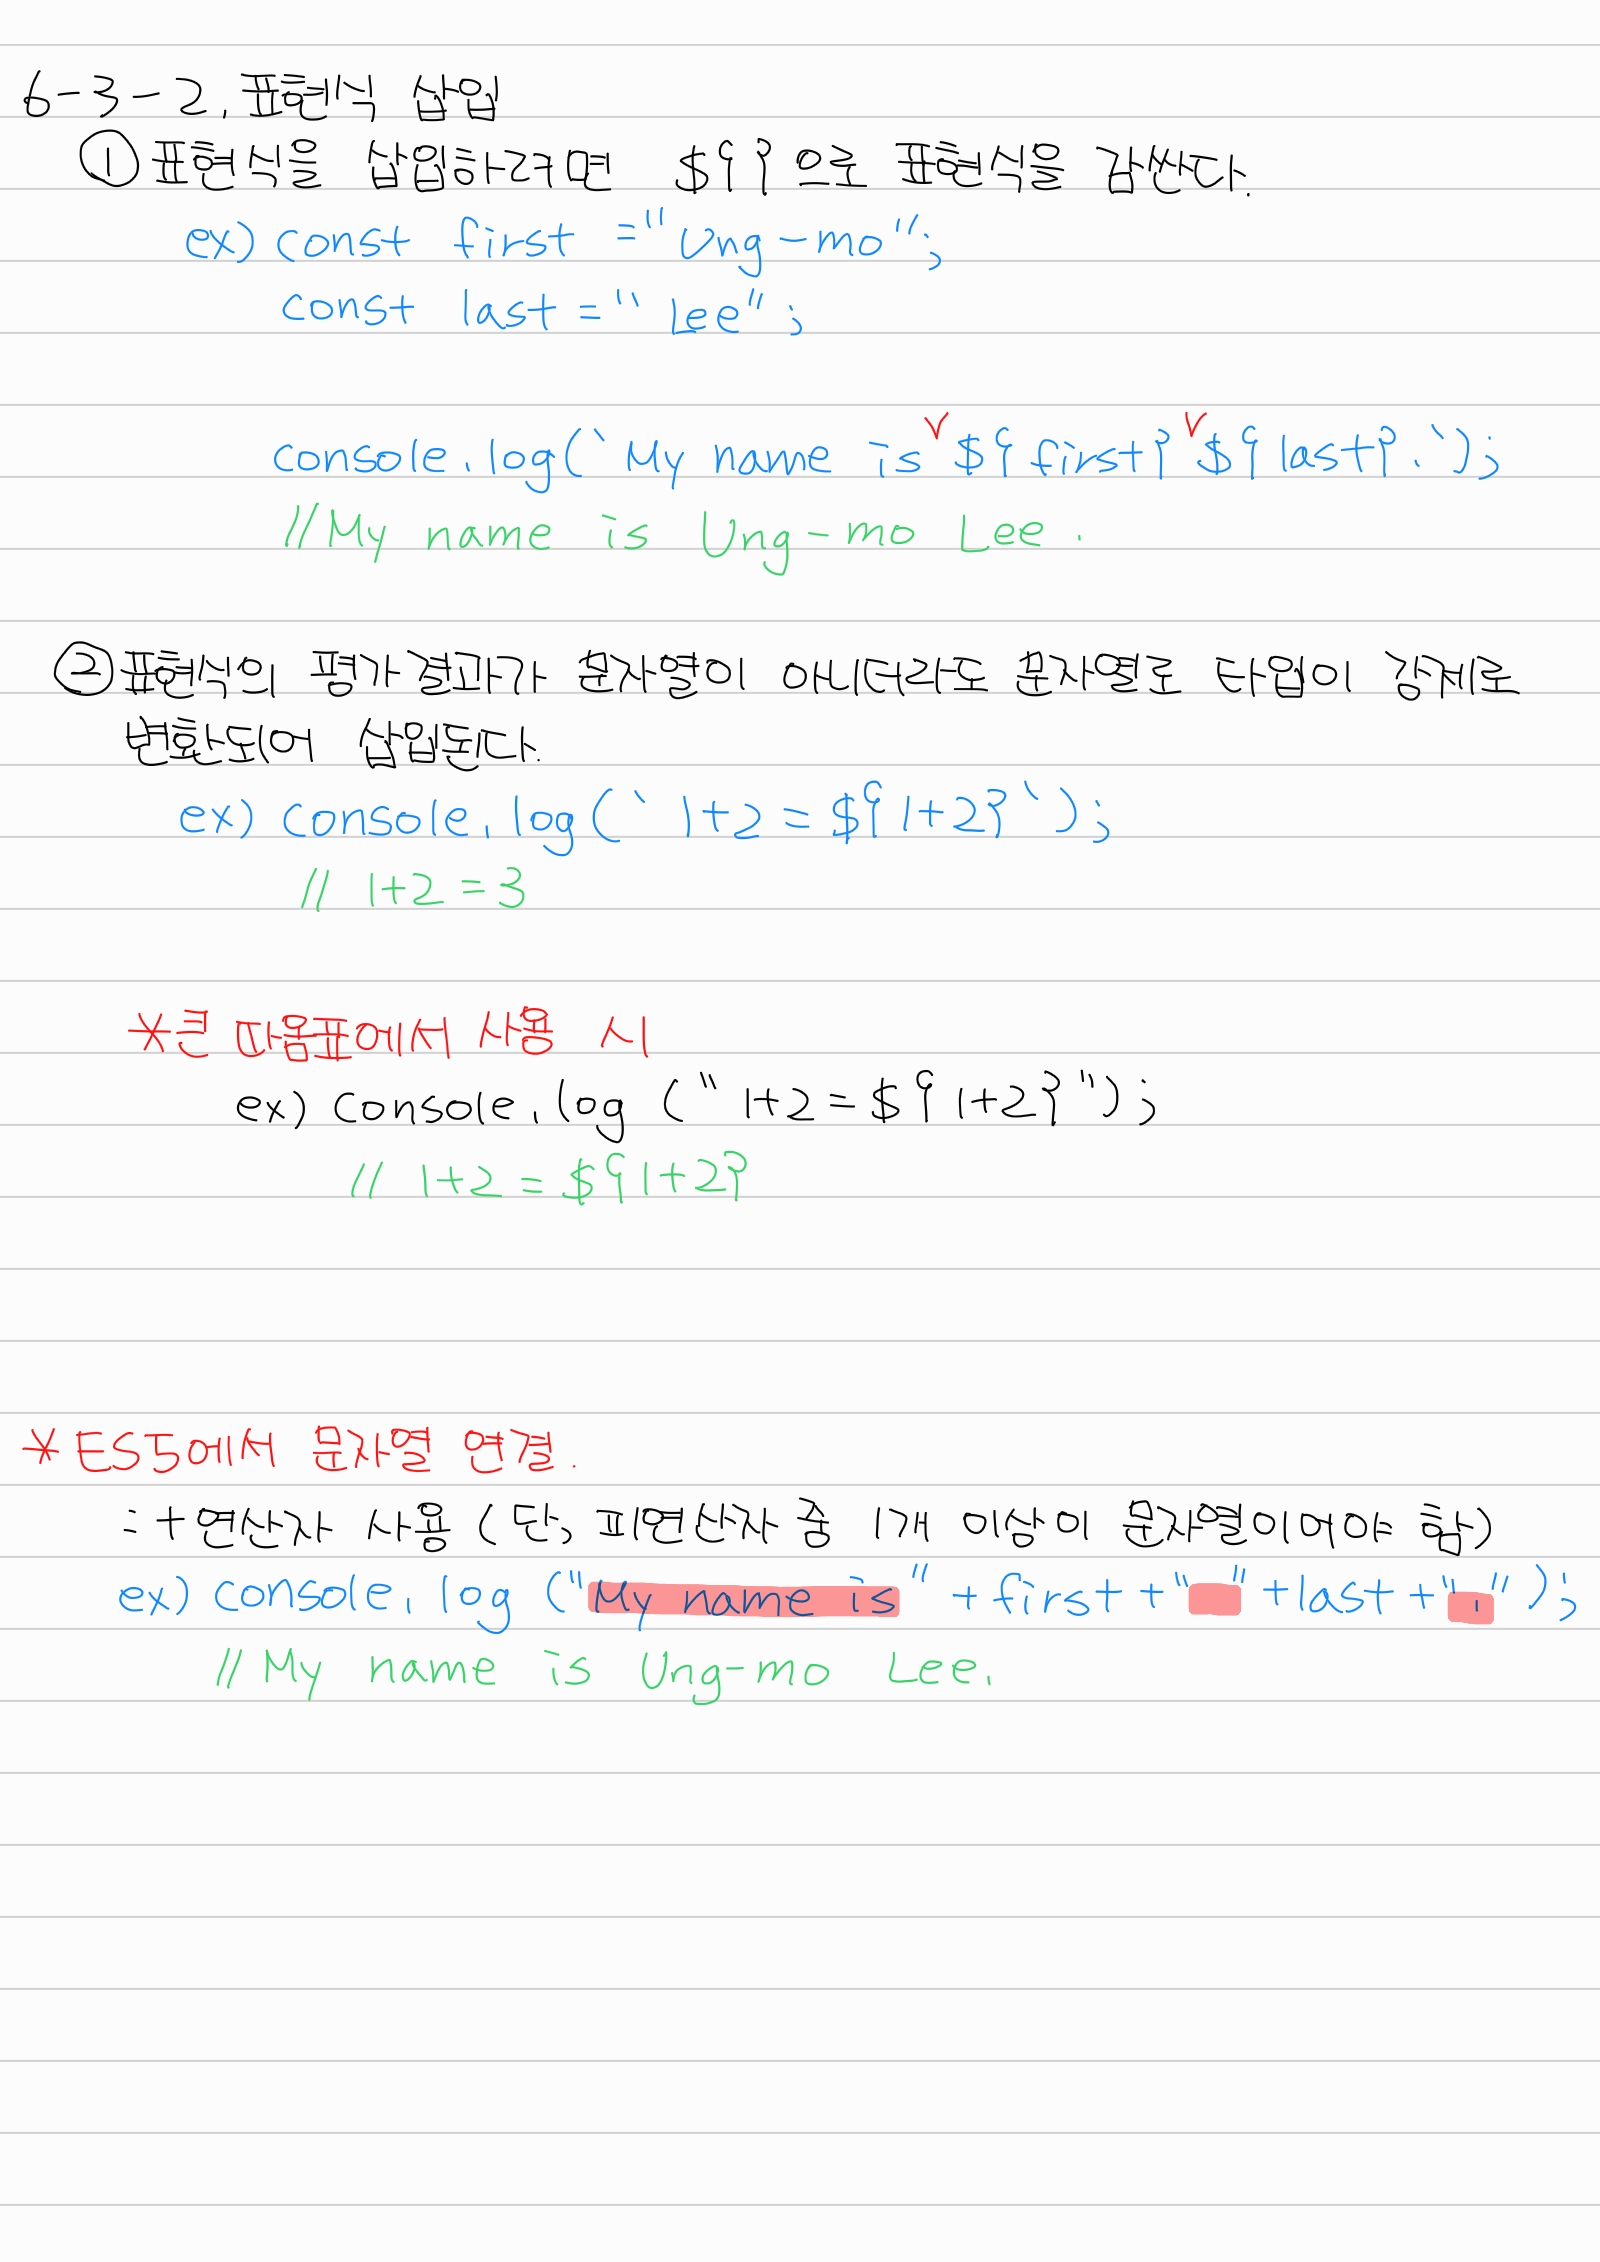 6-3-2. 표현식 삽입
① 표현식을 삽입하려면 ${}으로 표현식을 감싼다.
ex) const first ="Ung-mo";
const last = "Lee";
console.log(`My name is ${first} ${last}.`);
//My name is Ung-mo Lee.
② 표현식의 평가결과가 문자열이 아니더라도 문자열로 타입이 강제로
변환되어 삽입된다.
ex) console.log(`1+2 = ${1+2}`);
// 1+2 = 3
*큰 따옴표에서 사용 시
ex) console.log ("1+2 = ${1+2}");
// 1+2 = ${1+2}
* ES5에서 문자열 연결.
: +연산자 사용 (단, 피연산자 중 1개 이상이 문자열이어야 함)
ex) console.log ("My name is" + first + " " + last + ".");
// My name is Ung-mo Lee.